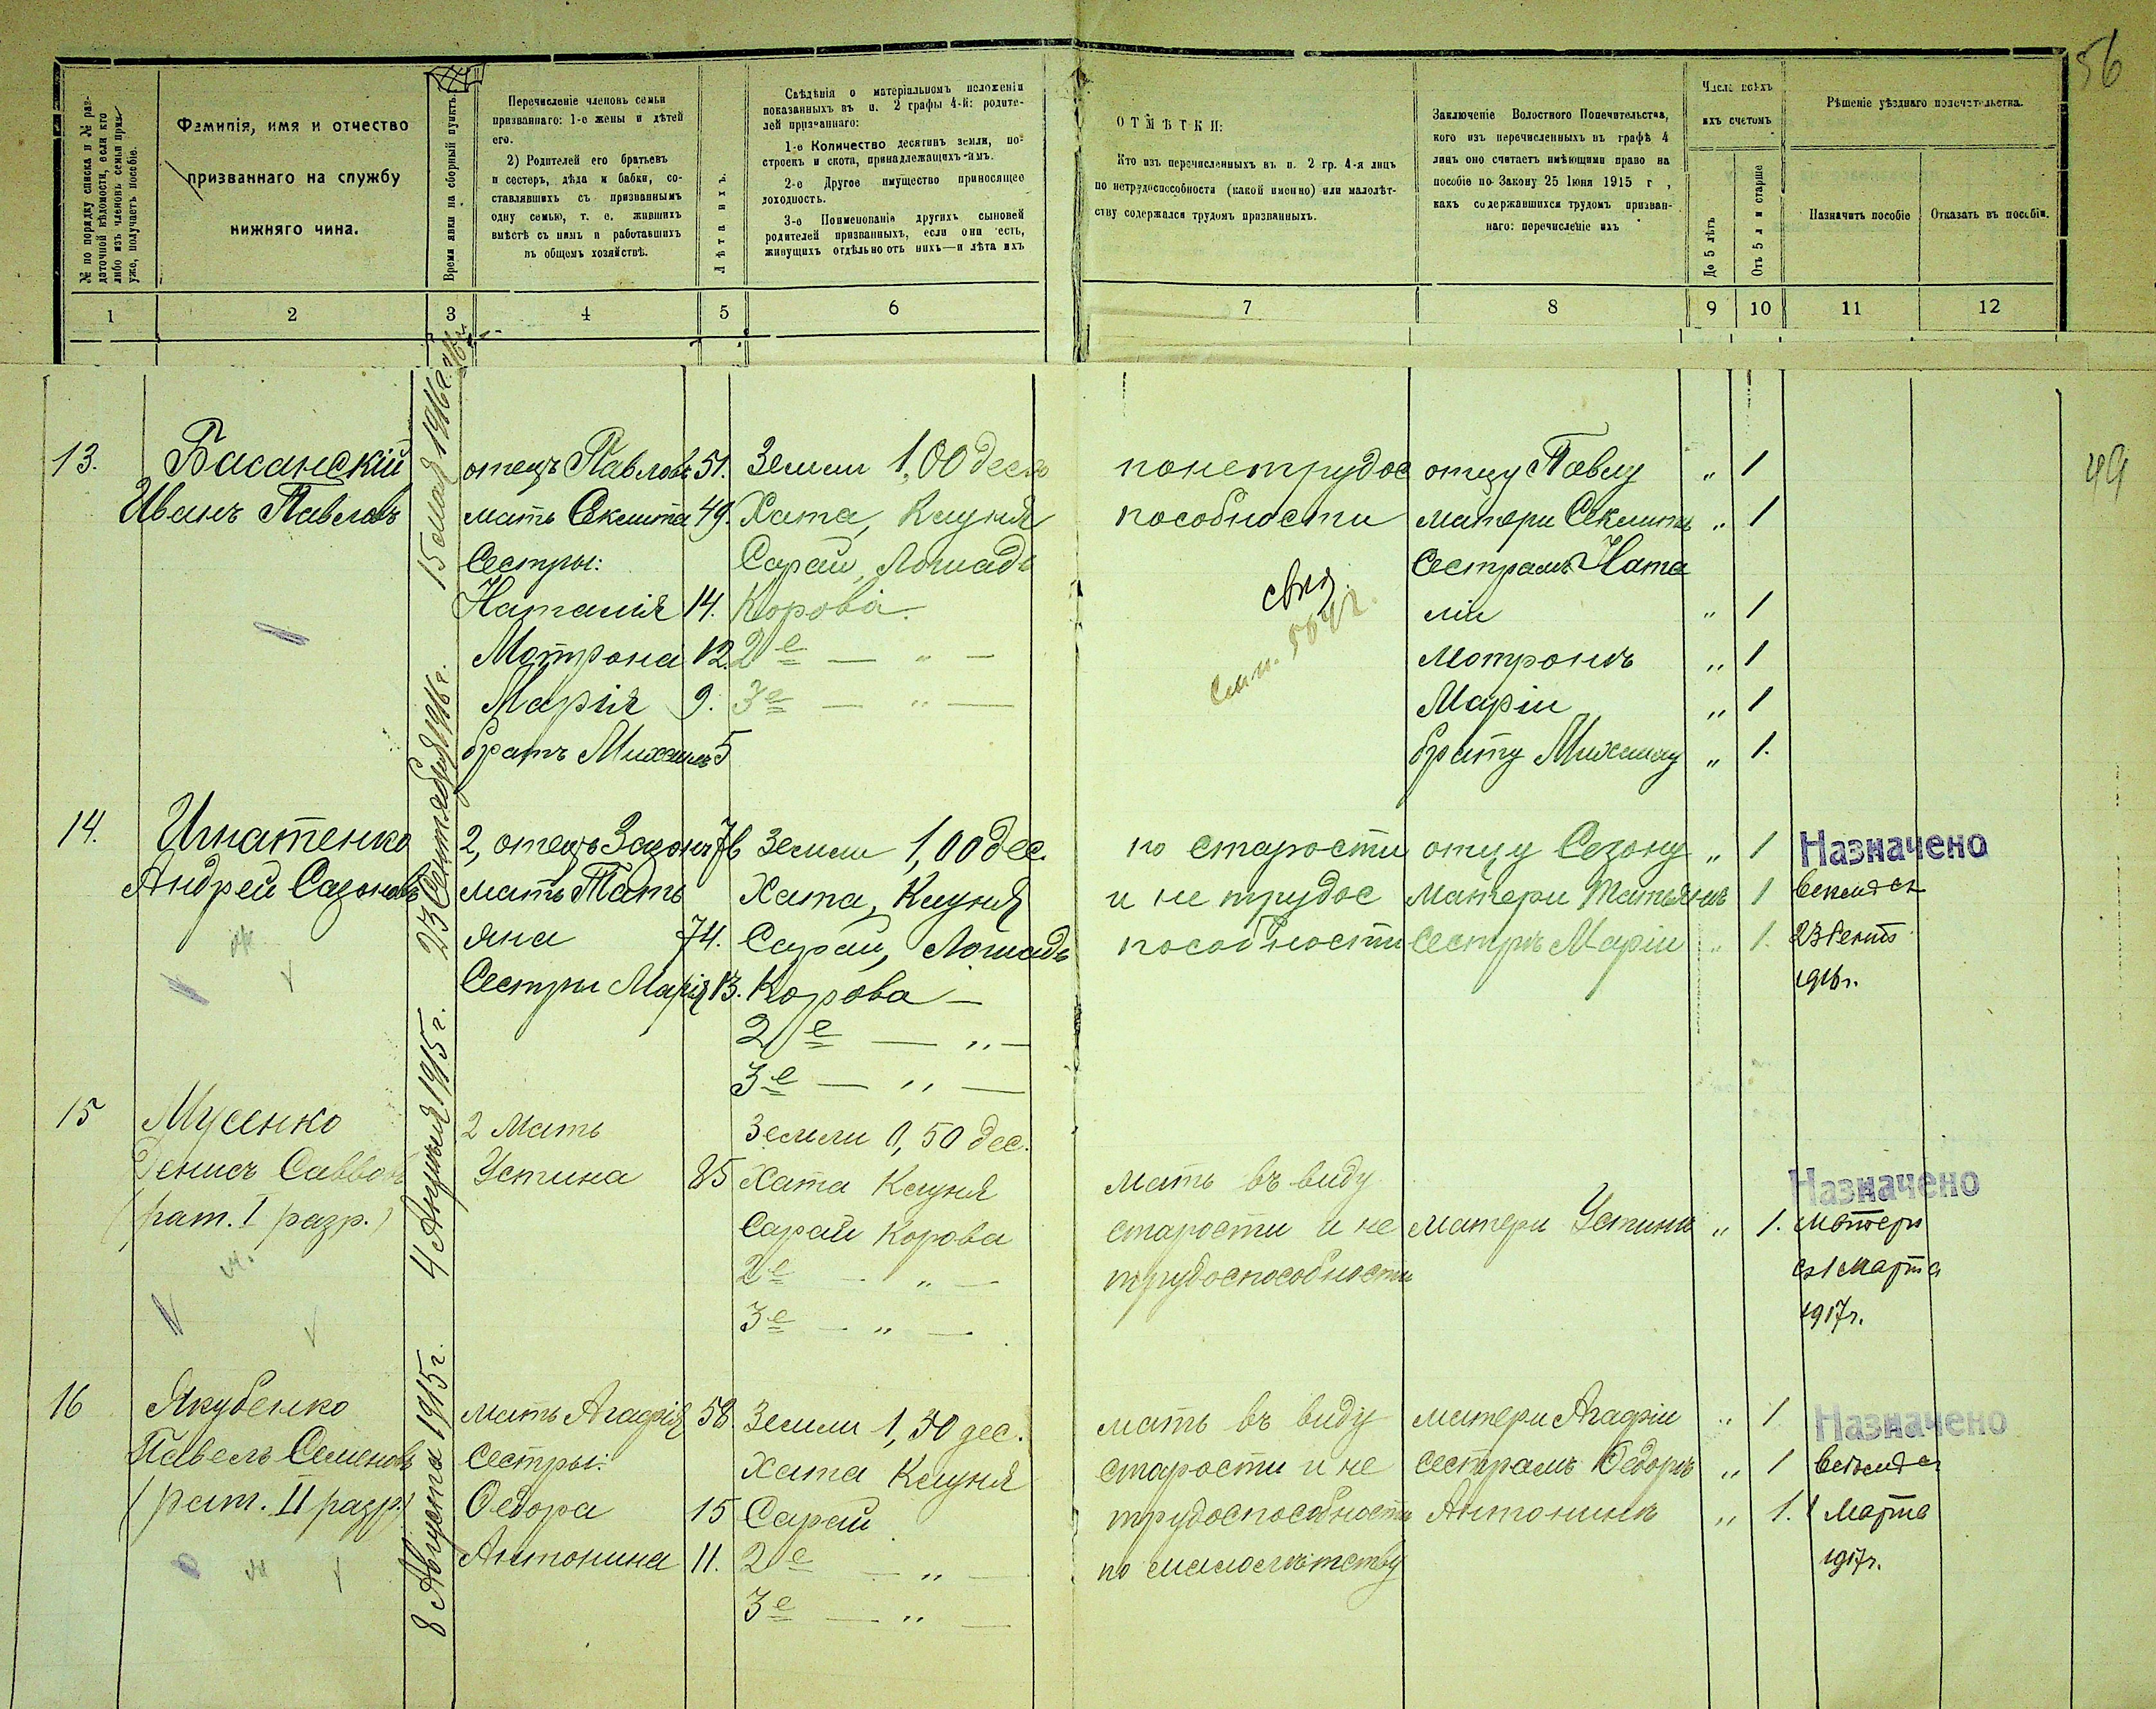 56
№ по порядку списка и № раз-
даточной вѣдомости, если кто
либо изъ членовъ семьи приз-
уже, получаетъ пособіе.
Фамилія, имя и отчество
призваннаго на службу
нижняго чина.
Время явки на сборный пунктъ.
Перечисленіе членовъ семьи
призваннаго: 1-е жены и дѣтей
его.
2) Родителей его братьевъ
и сестеръ, дѣда и бабки, со-
ставлявшихъ съ призваннымъ
одну семью, т. е. жившихъ
вмѣстѣ съ нимъ и работавшихъ
въ общемъ хозяйствѣ.
Лѣта ихъ.
Свѣдѣнія о матеріальномъ положеніи
показанныхъ въ п. 2 графы 4-й: родите-
лей призваннаго:
1-е Количество десятинъ земли, по-
строекъ и скота, принадлежащихъ имъ.
2-е Другое имущество приносящее
доходность.
3-е Поименованіе другихъ сыновей
родителей призванныхъ, если они есть,
живущихъ отдѣльно отъ нихъ—и лѣта ихъ
ОТМѢТКИ:
Кто изъ перечисленныхъ въ п. 2 гр. 4-я лицъ
по нетрудоспособности (какой именно) или малолѣт-
ству содержался трудомъ призванныхъ.
Заключеніе Волостного Попечительства,
кого изъ перечисленныхъ въ графѣ 4
лицъ оно считаетъ имѣющими право на
пособіе по Закону 25 Іюня 1915 г ,
какъ содержавшихся трудомъ призван-
наго: перечисленіе ихъ
Число всѣхъ
ихъ счетомъ
До 5 лѣтъ
Отъ 5 л и старше
Рѣшеніе уѣзднаго попечительства.
Назначить пособіе
Отказать въ пособіи.
1 2 3 4 5 6 7 8 9 10 11 12
49
13. Басанскій отецъ Павловъ 51. Земли 1,00 десят понетрудос отцу Павлу „ 1
Иванъ Павловъ 15 мая 1916 г. мать Секлита 49. Хата, Клуня пособности матери Секлитѣ „ 1
Сестры: Сарай, Лошадь Сестрамъ Ната
Наталія 14. Корова. ліи „ 1
Мотрона 12. 2е — „ — Мотронѣ „ 1
Марія 9. 3е — „ — Маріи „ 1
братъ Михаилъ 5 брату Михаилу „ 1.
14. Игнатенко 23 Сентября 1916 г. 2, отецъ Зазонъ 76 Земли 1,00 дес. по старости отцу Сезону „ 1 Назначено
Андрей Сазоновъ мать Тать Хата, Клуня и не трудос матери Татьянѣ 1
яна 74. Сарай, Лошадь пособности Сестрѣ Маріи „ 1. 23 Сент
Сестры Марія 13. Корова — 1916 г.
2е — „ —
3е — „ —
15 Мусенко 4 Апрѣля 1915 г. 2 Мать Земли 0,50 дес.
Денисъ Саввовъ Устина 85 Хата Клуня мать въ виду Назначено
(рат. I разр.) Сарай Корова старости и не матери Устинѣ „ 1. Матери
2е — „ — трудоспособности съ 1 Марта
3е — „ — 1917 г.
16 Якубенко 8 Августа 1915 г. мать Агафія 58. Земли 1,50 дес. мать въ виду матери Агафіи „ 1 Назначено
Павелъ Семеновъ Сестры: Хата Клуня старости и не сестрамъ Ѳедорѣ „ 1
(рат. II разр.) Ѳедора 15 Сарай трудоспособности Антонинѣ „ 1. 1 Марта
Антонина 11. 2е — „ — по малолѣтству 1917 г.
3е — „ —